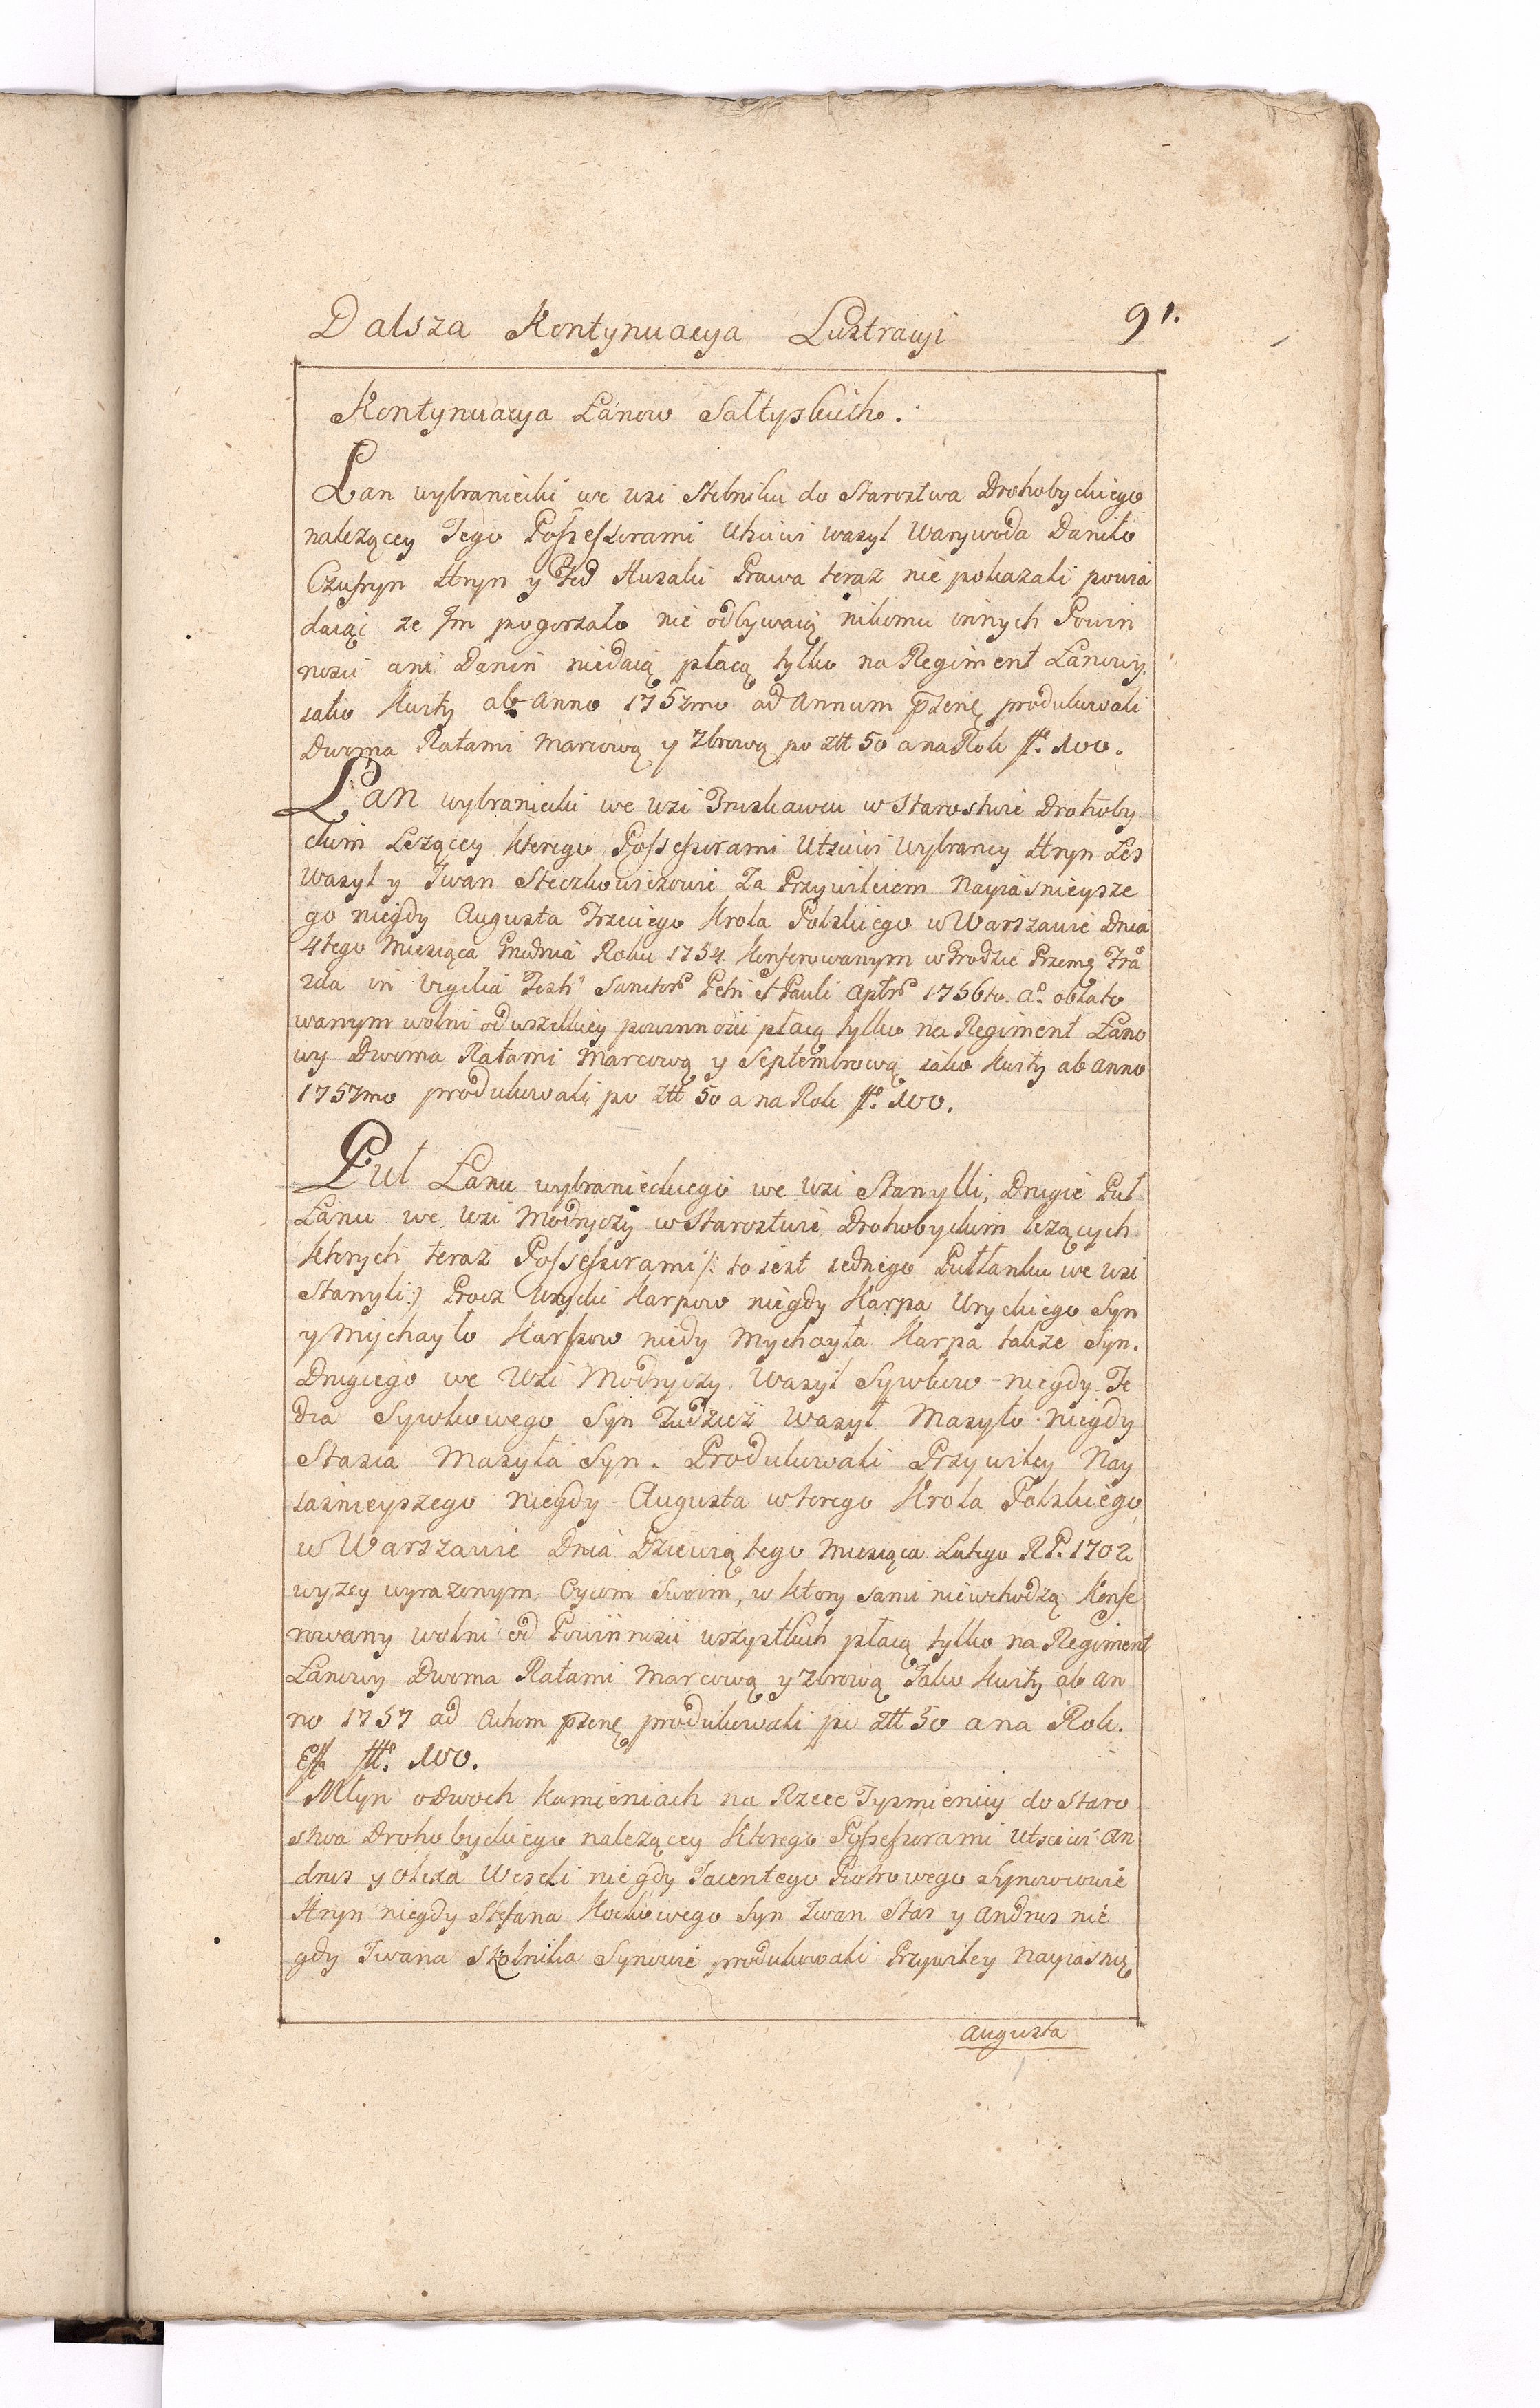 Dalsza Kontynuacya Lustracyi 91.
Kontynuacya Łanow Sołtyskich.
Łan wybraniecki we wsi Stebniku do Starostwa Drohobyckiego
należący Tego Possessorami Utściwi Wasyl Warywoda Daniło
Czufryn Hryn y Fed Husaki Prawa teraz nie pokazali powia
daiąc ze Im pogorzało nie odbywaią nikomu innych Powin
nosci ani Danin niedaią płacą tylko na Regiment Łanowy
iako Kwity ab Anno 1757mo ad Annum pszenę produkowali
Dwoma Ratami Marcową y 7brową po złł 50 a na Rok ff. 100.
Łan wybraniecki we wsi Truskawcu w Starostwie Drohoby
ckim Leżący ktorego Possessorami Utściwi Wybrancy Hryn Les
Wasyl y Iwan Steczkowiczowie Za Przywileiem Nayiasnieysze
go niegdy Augusta Trzeciego Krola Polskiego w Warszawie Dnia
4tego Miesiąca Grudnia Roku 1754. Konferowanym w Grodzie Przemy Fra
zda in Vigilia Festi Sanctor Petri et Pauli Aptłr 1756to. Ao. oblato
wanym wolni od wszelkiey powinnosci płacą tylko na Regiment Łano
wy Dwoma Ratami Marcową y Septembrową iako Kwity ab Anno
1757mo produkowali po złł 50 a na Rok ff. 100.
Puł Łanu wybranieckiego we wsi Stanylli, Drugie Puł
Łanu we wsi Modryczy w Starostwie Drohobyckim leżących
ktorych teraz Possessorami /: to iest iednego Pułłanku we wsi
Stanyli :/ Procz Urycki Karpow niegdy Karpa Uryckiego Syn
y Mychayło Karpow niedy Mychayła Karpa takze Syn.
Drugiego we Wsi Modryczy Wasyl Sywkow niegdy Fe
dia Sywkowego Syn Tudziez Wasyl Masyło niegdy
Stasia Masyła Syn. Produkowali Przywiley Nay
iasnieyszego niegdy Augusta wtorego Krola Polskiego
w Warszawie Dnia Dziewiątego Miesiąca Lutego RP. 1702
wyżey wyrazonym Oycom Swoim, w ktory sami niewchodzą Konfe
rowany wolni od Powinnosci wszystkich płacą tylko na Regiment
Łanowy Dwoma Ratami Marcową y 7brową Jako Kwity ab An
no 1757 ad Achom pszenę produkowali po złł 50 a na Rok.
Eff fff. 100.
Młyn o Dwoch Kamieniach na Rzece Tysmienicy do Staro
stwa Drohobyckiego należący Ktorego Possessorami Utściwi An
drus y Olexa Weseli niegdy Jacentego Piotrowego Synowowie
Hryn niegdy Stefana Kockowego Syn Iwan Stas y Andrus nie
gdy Iwana Skolnika Synowie produkowali Przywiley Nayiasnię
Augusta